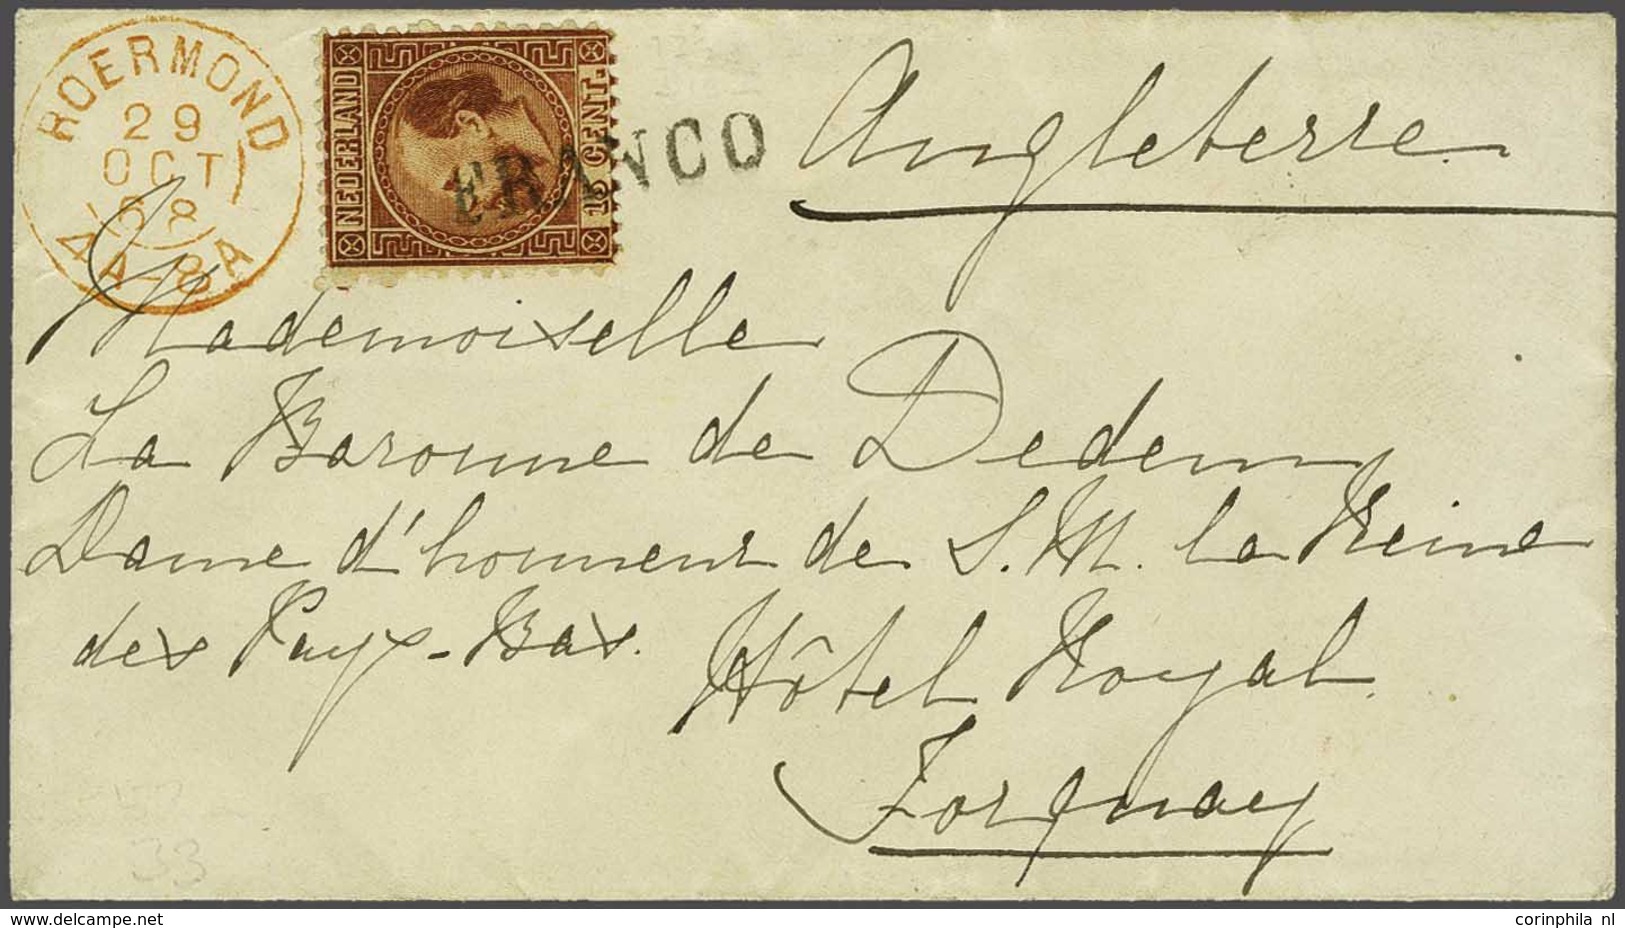 ROERMOND
29
OCT
68
4A-8A
NEDERLAND
15 CENT.
FRANCO
Angleterre
Mademoiselle
La Baronne de Dedem
Dame d'honneur de S. M. la Reine
des Pays-Bas.
Hôtel Royal
Torquay
33
corinphila nl